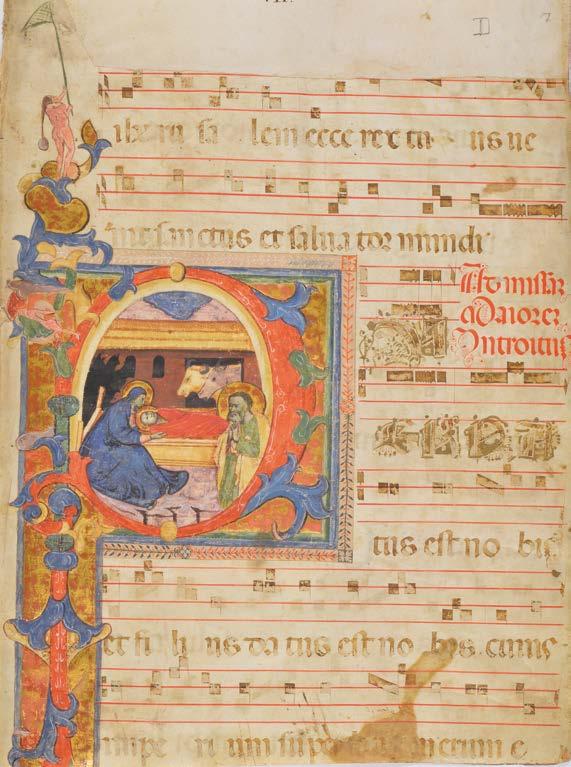 D 7
ihe ru sa lem ecce rex tu us ue
nit sanctus et salua tor mundi
Ad missaz
Maiorez
Introitus
ER NA
tus est no bis
et fi li us da tus est no bis cuius
impe ri um super e